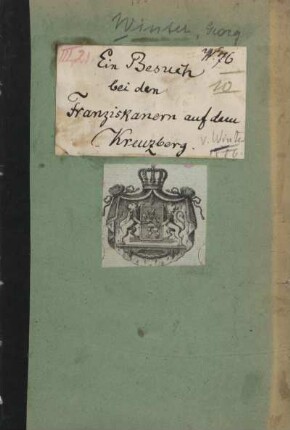 Winter, Georg
III 21
W. 76
Ein Besuch
10
bei den
Franziskanern auf dem
Kreuzberg.
v. Winter